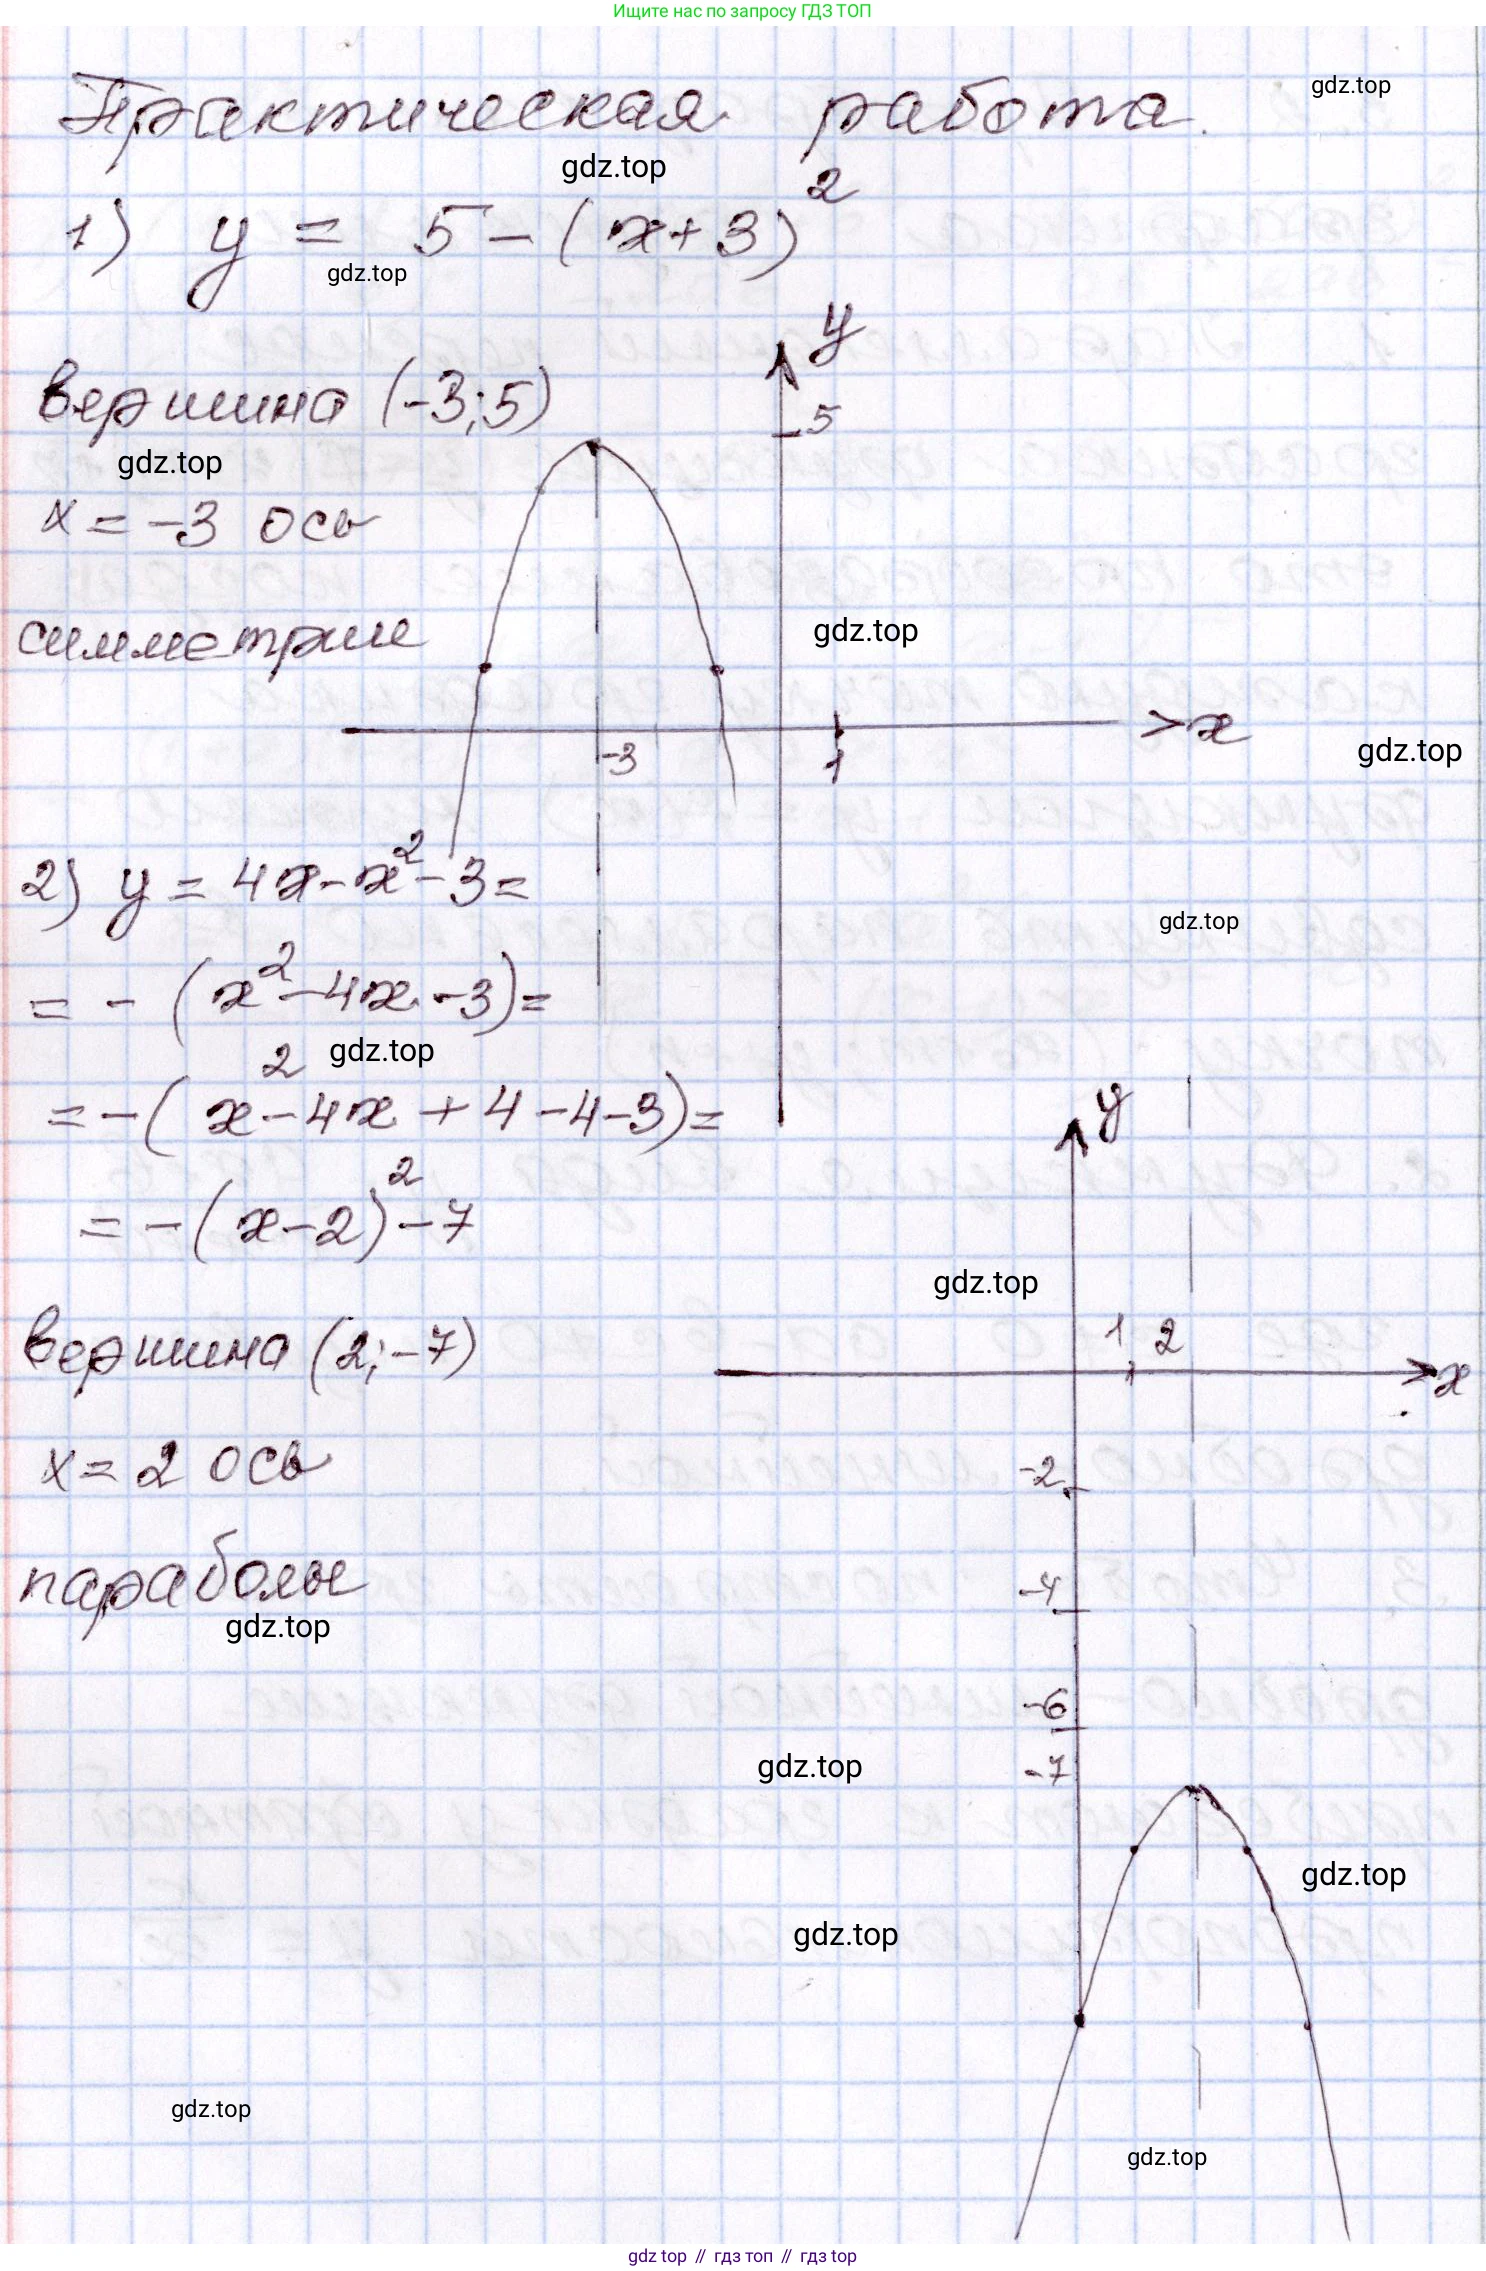 Ищите нас по запросу ГДЗ ТОП
gdz.top
Практическая работа.
gdz.top
1) y = 5 - (x+3)²
gdz.top
y
вершина (-3;5)
5
gdz.top
x = -3 ось
симметрии
gdz.top
x
-3
1
gdz.top
2) y = 4x - x² - 3 =
gdz.top
= - (x² - 4x - 3) =
gdz.top
= - (x² - 4x + 4 - 4 - 3) =
y
= - (x - 2)² - 7
gdz.top
вершина (2; -7)
1 2
x
x = 2 ось
-2
параболы
-4
gdz.top
-6
gdz.top
-7
gdz.top
gdz.top
gdz.top
gdz.top
gdz top // гдз топ // gdz top